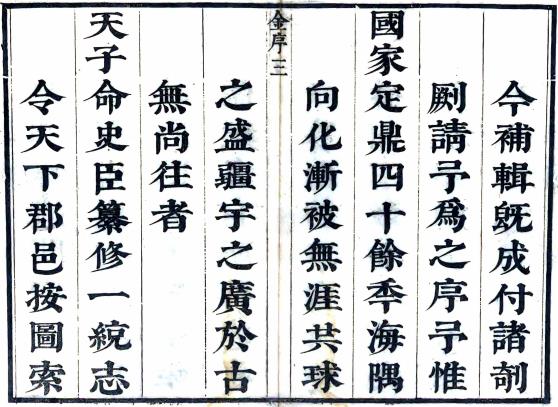 今補輯旣成付諸剞
劂請予爲之序予惟
國家定鼎四十餘秊海隅
向化漸被無涯共球
金序 三
之盛疆宇之廣於古
無尚往者
天子命史臣纂修一統志
令天下郡邑按圖索